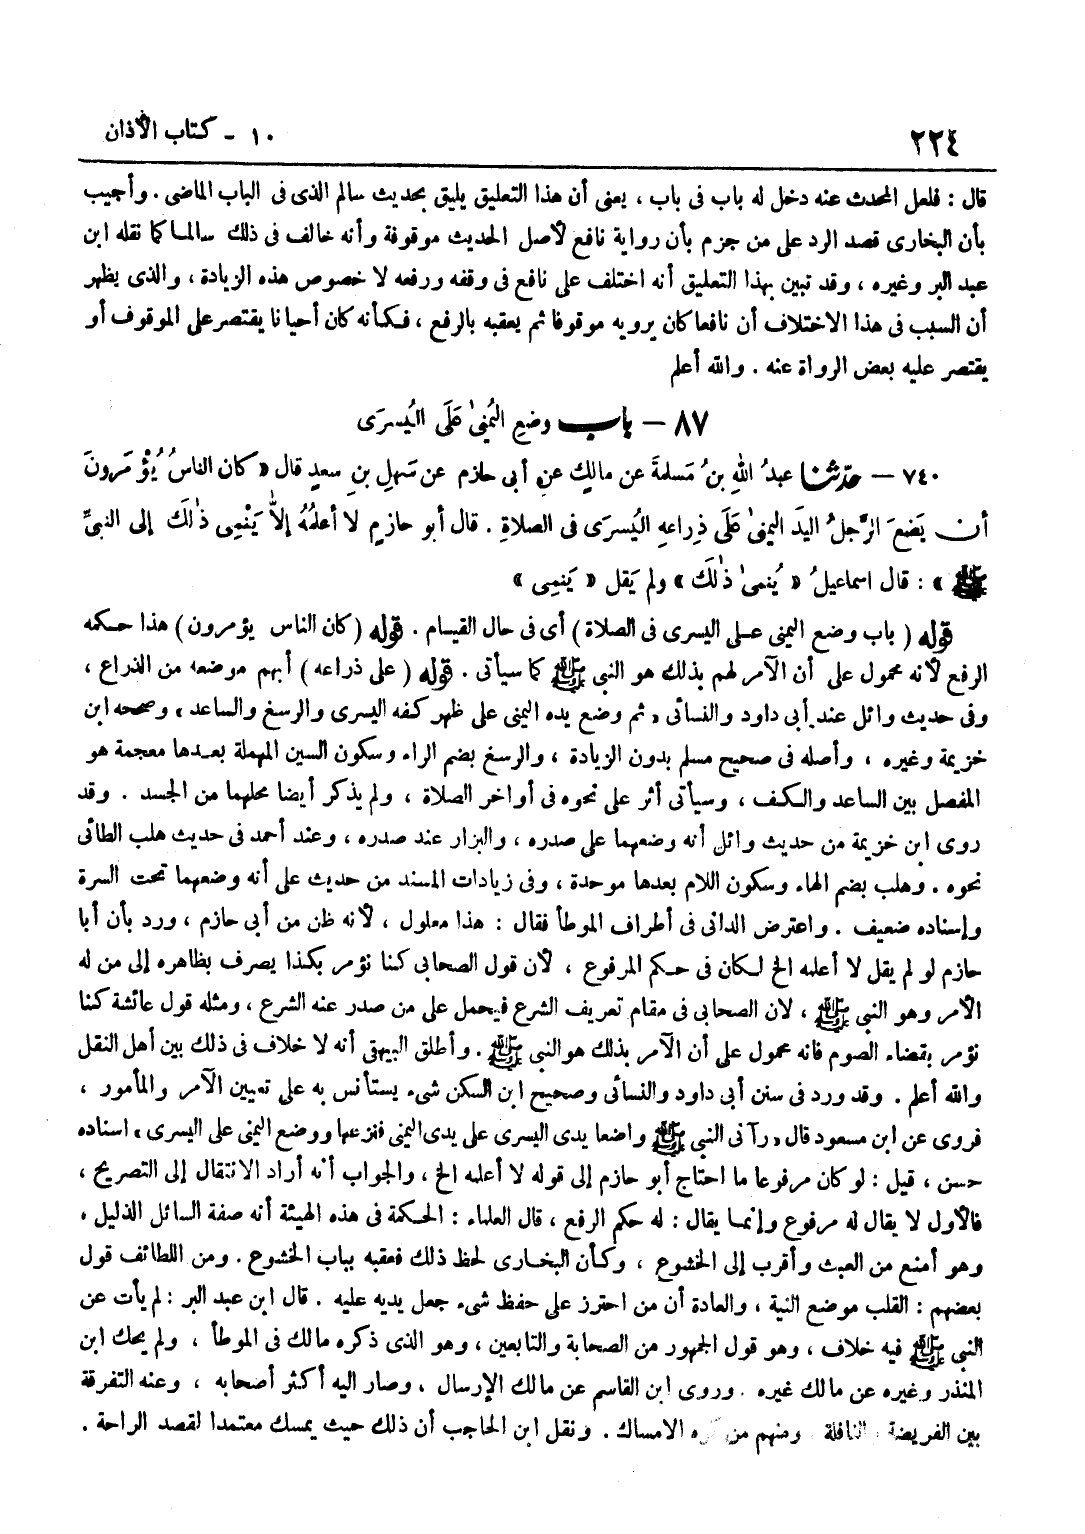 ٢٢٤ ١٠ - كتاب الأذان
قال : فلعل المحدث عنه دخل له باب فى باب ، يعنى أن هذا التعليق يليق بحديث سالم الذى فى الباب الماضى . وأجيب
بأن البخارى قصد الرد على من جزم بأن رواية نافع لأصل الحديث موقوفة وأنه خالف فى ذلك سالما كما نقله ابن
عبد البر وغيره ، وقد تبين بهذا التعليق أنه اختلف على نافع فى وقفه ورفعه لا خصوص هذه الزيادة ، والذى يظهر
أن السبب فى هذا الاختلاف أن نافعا كان يرويه موقوفا ثم يعقبه بالرفع ، فكأنه كان أحيانا يقتصر على الموقوف أو
يقتصر عليه بعض الرواة عنه . والله أعلم
٨٧ - باب وضعِ اليُمنىٰ عَلَى اليُسرَى
٧٤٠ - حدّثنا عبدُ اللهِ بنُ مَسلمةَ عن مالكٍ عن أبى حازم عن سَهلِ بنِ سعدٍ قال « كان الناسُ يُؤْمَرونَ
أن يَضعَ الرَّجلُ اليدَ اليمنىٰ عَلَى ذِراعهِ اليُسرَى فى الصلاةِ . قال أبو حازمٍ لا أعلمُهُ إلاَّ يَنْمِى ذٰلكَ إلى النبىِّ
ﷺ » : قال اسماعيلُ « يُنمىٰ ذٰلكَ » ولم يَقل « يَنمِى »
قوله ( باب وضع اليمنى على اليسرى فى الصلاة ) أى فى حال القيام . قوله ( كان الناس يؤمرون ) هذا حكمه
الرفع لأنه محمول على أن الآمر لهم بذلك هو النبى ﷺ كما سيأتى . قوله ( على ذراعه ) أبهم موضعه من الذراع ،
وفى حديث وائل عند أبى داود والنسائى « ثم وضع يده اليمنى على ظهر كفه اليسرى والرسغ والساعد » وصححه ابن
خزيمة وغيره ، وأصله فى صحيح مسلم بدون الزيادة ، والرسغ بضم الراء وسكون السين المهملة بعدها معجمة هو
المفصل بين الساعد والكف ، وسيأتى أثر على نحوه فى أواخر الصلاة ، ولم يذكر أيضا محلهما من الجسد . وقد
روى ابن خزيمة من حديث وائل أنه وضعهما على صدره ، والبزار عند صدره ، وعند أحمد فى حديث هلب الطائى
نحوه . وهلب بضم الهاء وسكون اللام بعدها موحدة ، وفى زيادات المسند من حديث على أنه وضعهما تحت السرة
وإسناده ضعيف . واعترض الدانى فى أطراف الموطأ فقال : هذا معلول ، لأنه ظن من أبى حازم ، ورد بأن أبا
حازم لو لم يقل لا أعلمه الخ لكان فى حكم المرفوع ، لأن قول الصحابى كنا نؤمر بكذا يصرف بظاهره إلى من له
الأمر وهو النبى ﷺ ، لان الصحابى فى مقام تعريف الشرع فيحمل على من صدر عنه الشرع ، ومثله قول عائشة كنا
نؤمر بقضاء الصوم فانه محمول على أن الآمر بذلك هو النبى ﷺ . وأطلق البيهقى أنه لا خلاف فى ذلك بين أهل النقل
والله أعلم . وقد ورد فى سنن أبى داود والنسائى وصحيح ابن السكن شىء يستأنس به على تعيين الآمر والمأمور ،
فروى عن ابن مسعود قال « رآنى النبى ﷺ واضعا يدى اليسرى على يدى اليمنى فنزعها ووضع اليمنى على اليسرى » اسناده
حسن ، قيل : لو كان مرفوعا ما احتاج أبو حازم إلى قوله لا أعلمه الخ ، والجواب أنه أراد الانتقال إلى التصريح ،
فالأول لا يقال له مرفوع وإنما يقال : له حكم الرفع ، قال العلماء : الحكمة فى هذه الهيئة أنه صفة السائل الذليل ،
وهو أمنع من العبث وأقرب إلى الخشوع ، وكأن البخارى لحظ ذلك فعقبه بباب الخشوع . ومن اللطائف قول
بعضهم : القلب موضع النية ، والعادة أن من احترز على حفظ شىء جعل يديه عليه . قال ابن عبد البر : لم يأت عن
النبى ﷺ فيه خلاف ، وهو قول الجمهور من الصحابة والتابعين ، وهو الذى ذكره مالك فى الموطأ ، ولم يحك ابن
المنذر وغيره عن مالك غيره . وروى ابن القاسم عن مالك الإرسال ، وصار اليه أكثر أصحابه ، وعنه التفرقة
بين الفريضة والنافلة . ومنهم من كره الامساك . ونقل ابن الحاجب أن ذلك حيث يمسك معتمدا لقصد الراحة .